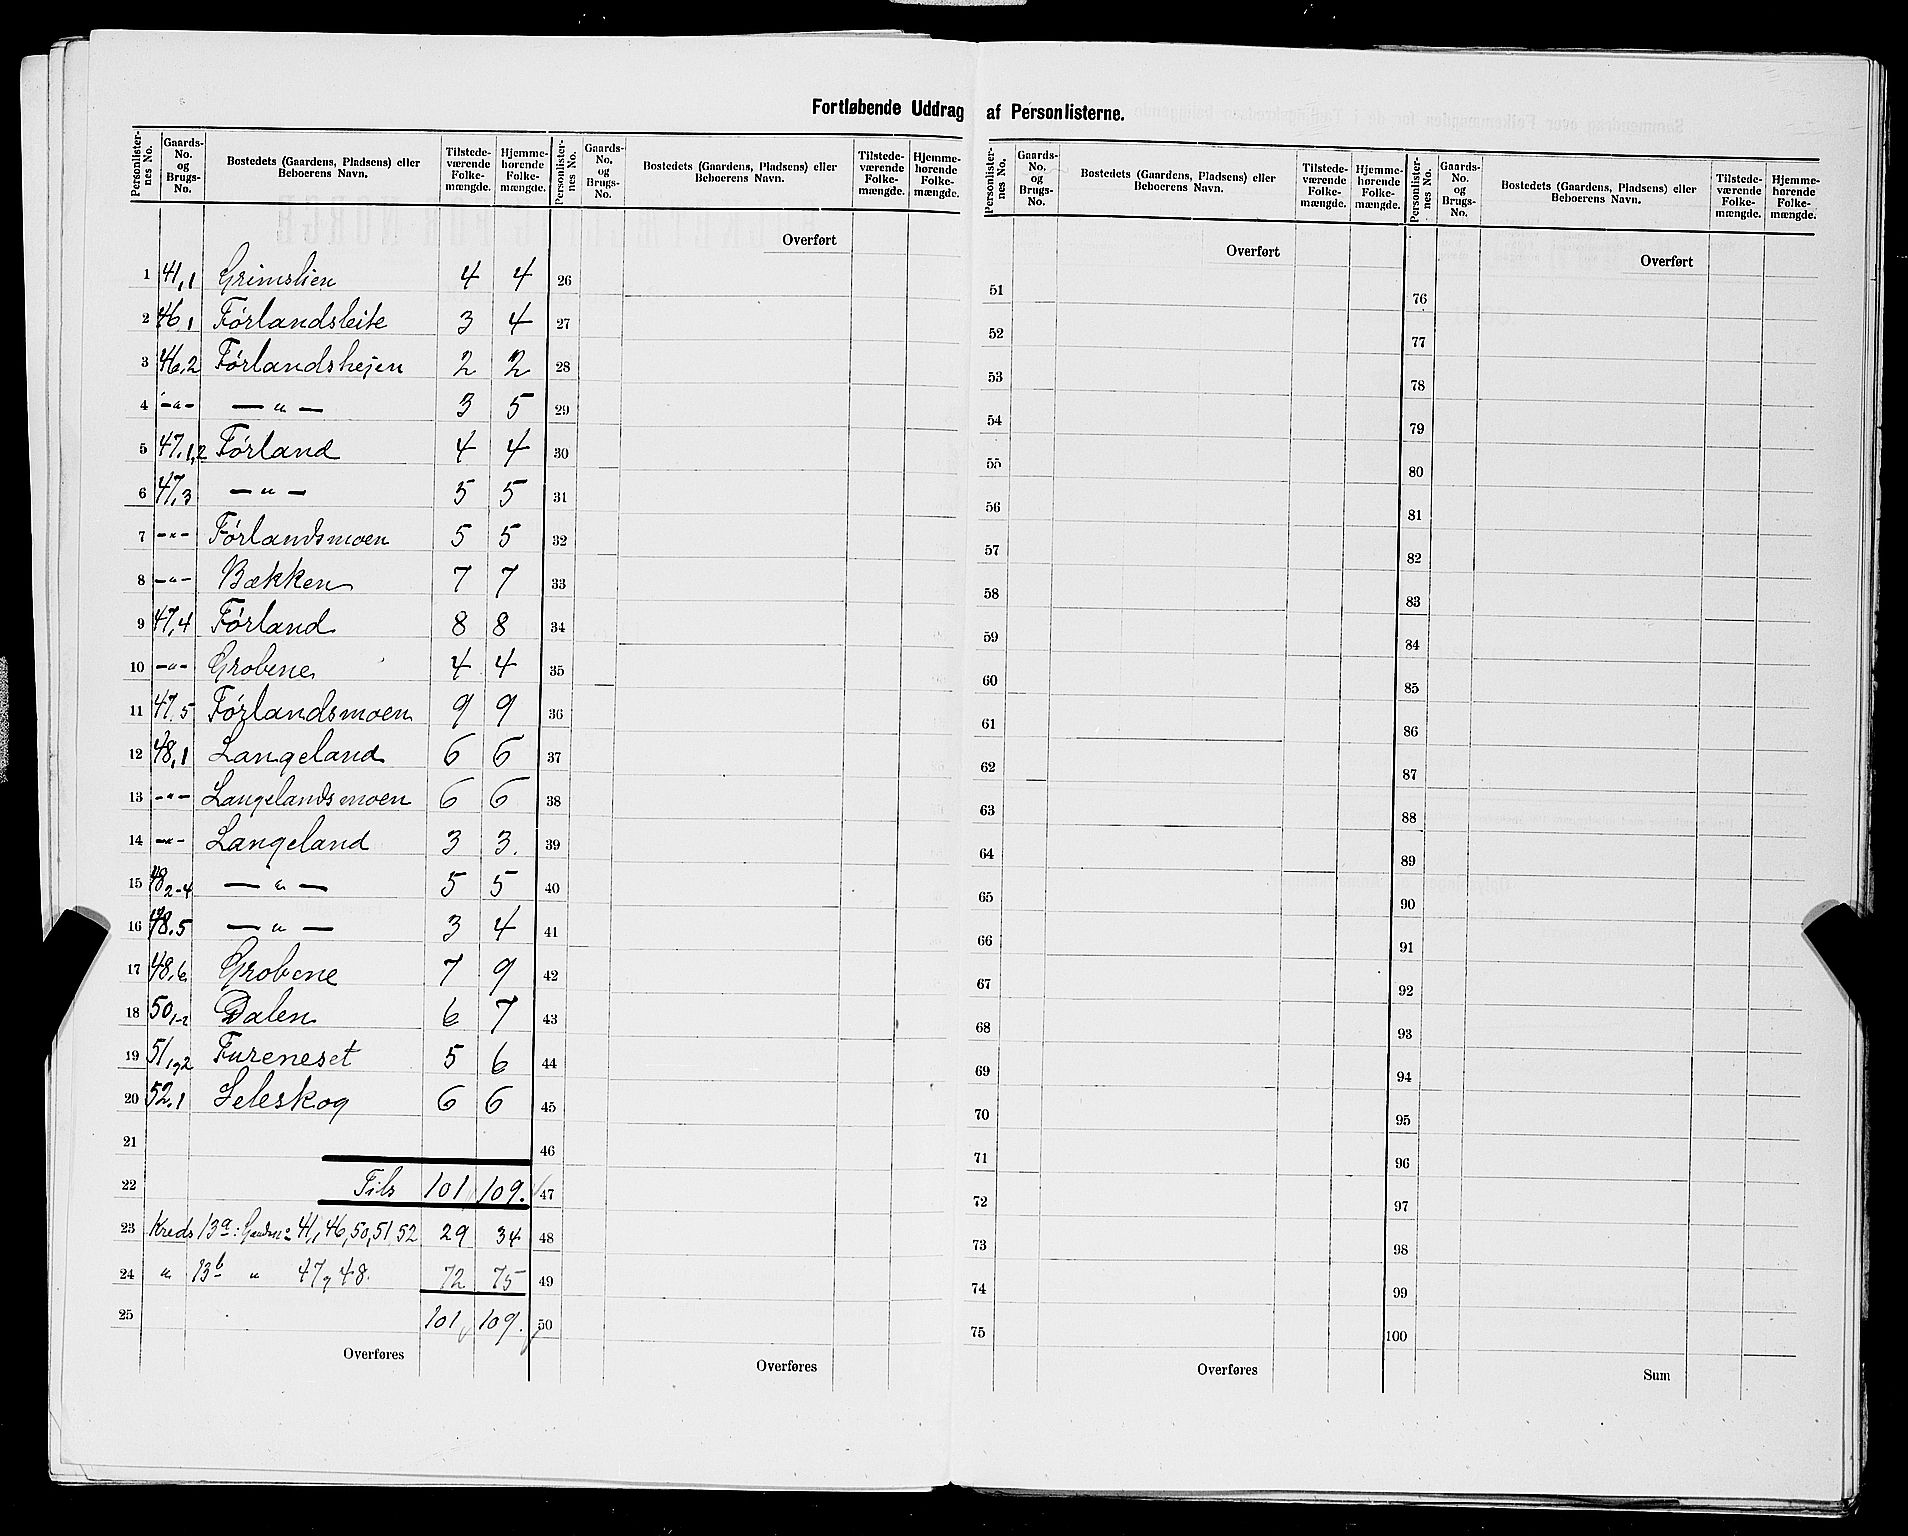 Fortløbende Uddrag af Personlisterne.
Personlister-nes No. | Gaards-No. og Brugs-No. | Bostedets (Gaardens, Pladsens) eller Beboerens Navn. | Tilstede-værende Folke-mængde. | Hjemme-hørende Folke-mængde. | Personlister-nes No. | Gaards-No. og Brugs-No. | Bostedets (Gaardens, Pladsens) eller Beboerens Navn. | Tilstede-værende Folke-mængde. | Hjemme-hørende Folke-mængde. | Personlister-nes No. | Gaards-No. og Brugs-No. | Bostedets (Gaardens, Pladsens) eller Beboerens Navn. | Tilstede-værende Folke-mængde. | Hjemme-hørende Folke-mængde. | Personlister-nes No. | Gaards-No. og Brugs-No. | Bostedets (Gaardens, Pladsens) eller Beboerens Navn. | Tilstede-værende Folke-mængde. | Hjemme-hørende Folke-mængde.
Overført Overført Overført
1 41,1 Grimslien 4 4 26 51 76
2 46,1 Førlandsleite 3 4 27 52 77
3 46,2 Førlandshejen 2 2 28 53 78
4 -"- — " — 3 5 29 54 79
5 47.1,2 Førland 4 4 30 55 80
6 47,3 — " — 5 5 31 56 81
7 -"- Førlandsmoen 5 5 32 57 82
8 -"- Bækken 7 7 33 58 83
9 47,4 Førland 8 8 34 59 84
10 -"- Grobene 4 4 35 60 85
11 47,5 Førlandsmoen 9 9 36 61 86
12 48,1 Langeland 6 6 37 62 87
13 -"- Langelandsmoen 6 6 38 63 88
14 -"- Langeland 3 3. 39 64 89
15 48 2-4 — " — 5 5 40 65 90
16 48.5 — " — 3 4 41 66 91
17 48.6 Grobene 7 9 42 67 92
18 50,1-2 Dalen 6 7 43 68 93
19 51,1,2 Fureneset 5 6 44 69 94
20 52.1 Leleskog 6 6 45 70 95
21 46 71 96
22 Tils 101 109. 47 72 97
23 Kreds 13a: Gaardsno 41, 46, 50, 51, 52 29 34 48 73 98
24 " 13b " 47 og 48. 72 75 49 74 99
25 101 109. 50 75 100
Overføres Overføres Overføres Sum